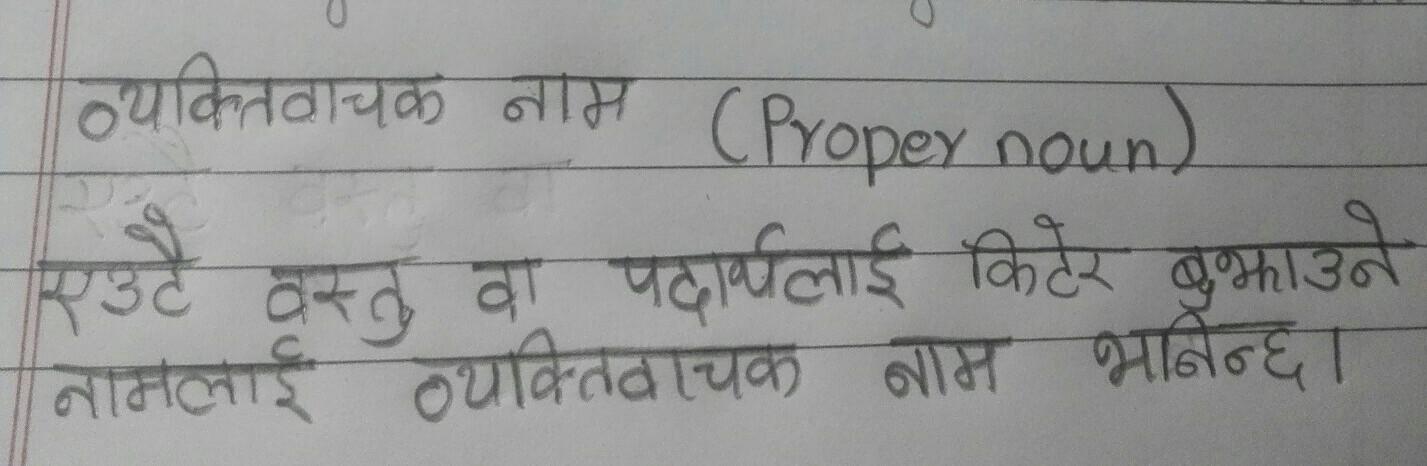 व्यक्तिवाचक नाम (Proper noun)
एउटै वस्तु वा पदार्थलाई किटेर बुझाउने
नामलाई व्यक्तिवाचक नाम भनिन्छ।